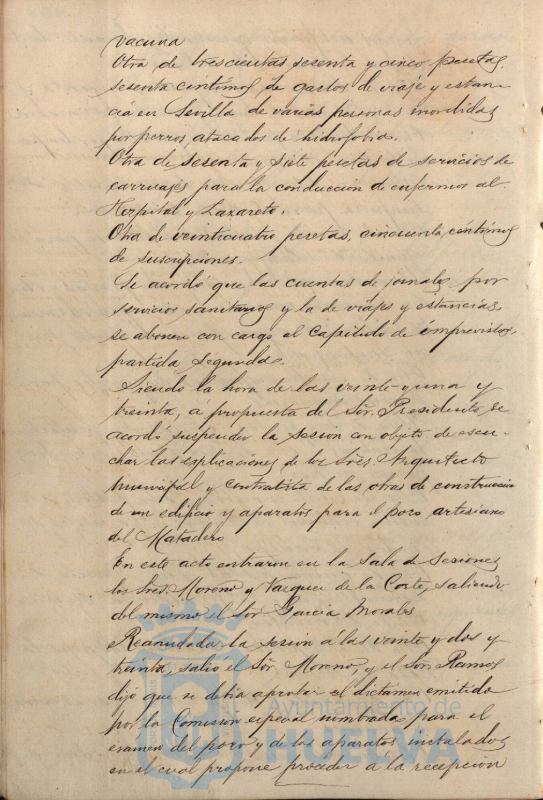 vacuna
Otra de trescientas sesenta y cinco pesetas,
sesenta centimos de gastos de viaje y estan-
cia en Sevilla de varias personas mordidas
por perros atacados de hidrofobia.
Otra de sesenta y siete pesetas de servicios de
carruajes para la conducción de enfermos al
Hospital y Lazareto.
Otra de veinticuatro pesetas, cincuenta céntimos
de suscripciones.
Se acordó que las cuentas de jornales por
servicios sanitarios y la de viajes y estancias,
se abonen con cargo al Capitulo de imprevistos,
partida segunda.
Siendo la hora de las veinte y una y
treinta, a propuesta del Sr. Presidente, se
acordó suspender la sesion con objeto de escu-
char las esplicaciones de los Sres. Arquitecto
municipal y Contratista de las obras de construccion
de un edificio y aparatos para el pozo artesiano
del Matadero
En este acto entraron en la sala de sesiones
los Sres. Moreno y Vazquez de la Corte, saliendo
del mismo el Sor Garcia Morales
Reanudada la sesion á las veinte y dos y
treinta, salió el Sor. Moreno, y el Sor. Ramos
dijo que se debia aprobar el dictámen emitido
por la Comision especial nombrada para el
examen del pozo y de los aparatos instalados
en el cual propone proceder a la recepcion
Ayuntamiento de
HUELVA